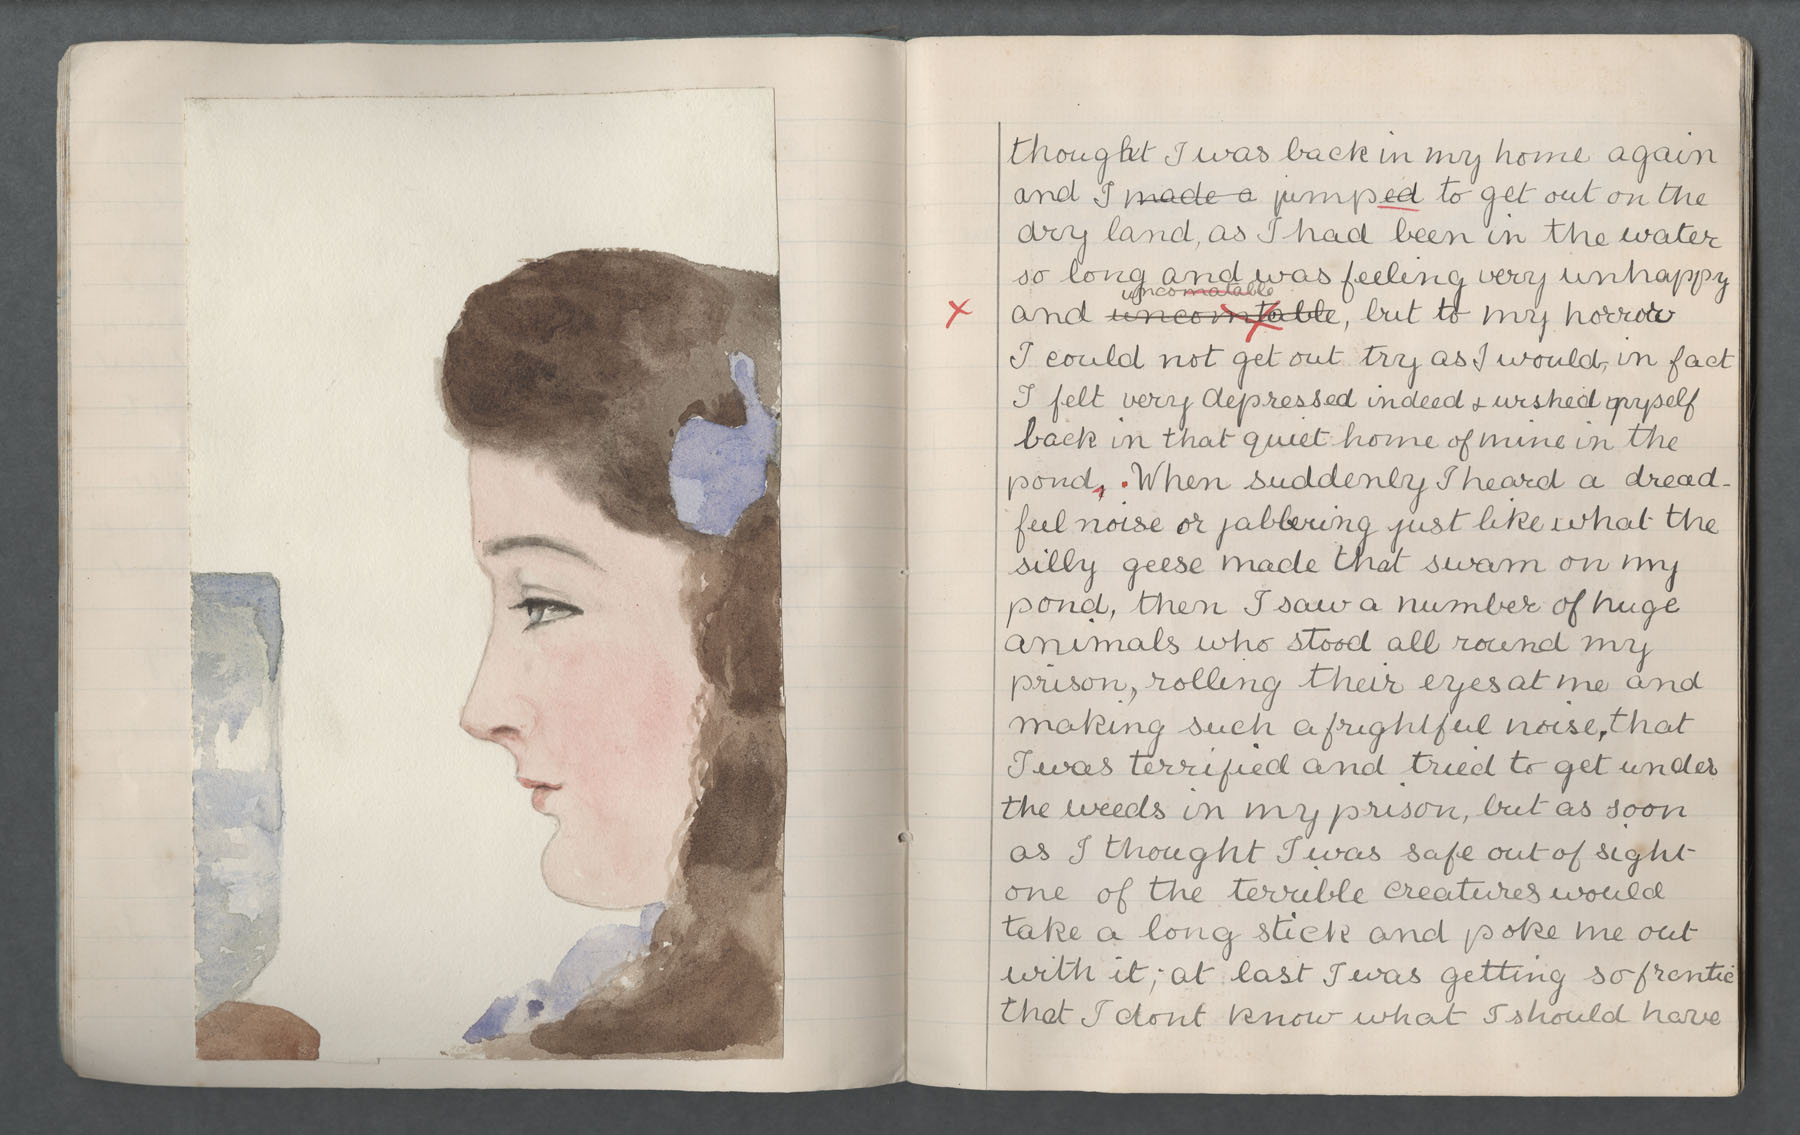 thought I was back in my home again
and I made a jumped to get out on the
dry land, as I had been in the water
so long and was feeling very unhappy
uncomatable
x and uncomtable, but to my horrow
I could not get out try as I would, in fact
I felt very depressed indeed & wished myself
back in that quiet home of mine in the
pond, . When suddenly I heard a dread-
ful noise or jabbering just like what the
silly geese made that swam on my
pond, then I saw a number of huge
animals who stood all round my
prison, rolling their eyes at me and
making such a frightful noise, that
I was terrified and tried to get under
the weeds in my prison, but as soon
as I thought I was safe out of sight
one of the terrible creatures would
take a long stick and poke me out
with it; at last I was getting so frentic
that I dont know what I should have